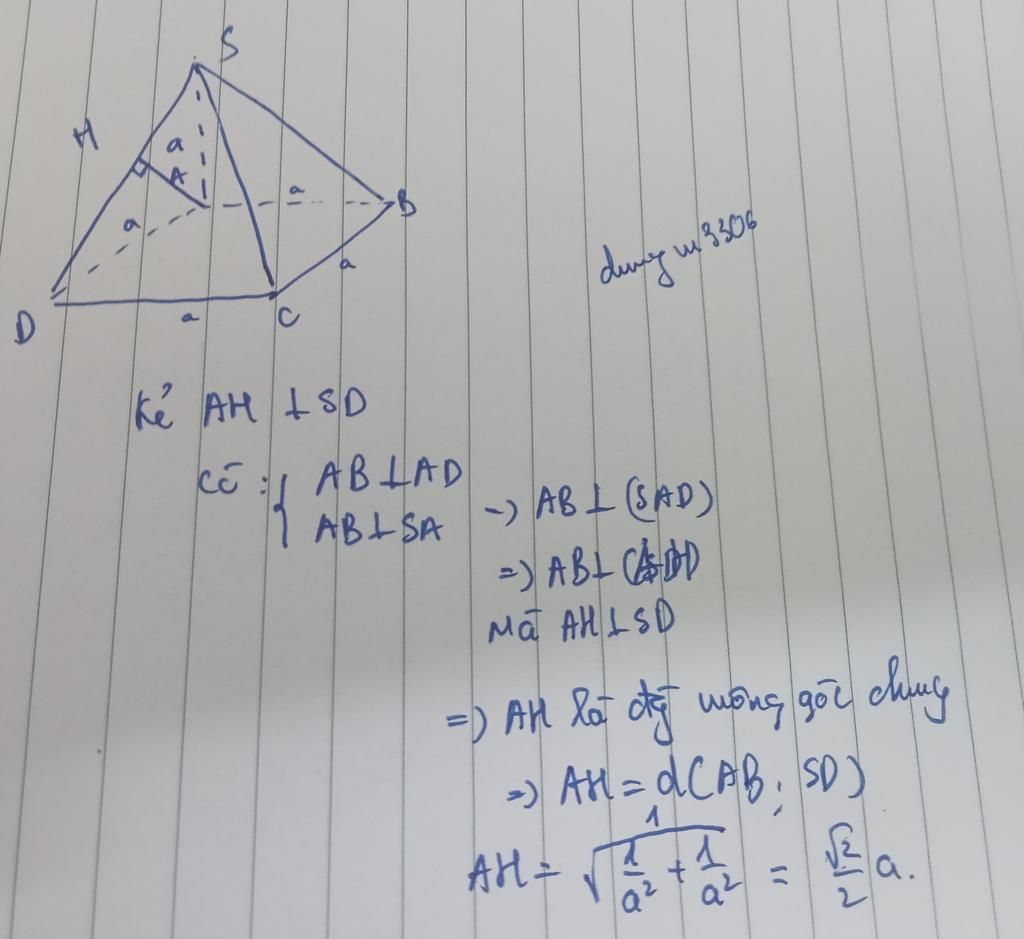 S
H
a
A
a
a
B
a
D
a
C
Kẻ AH ⊥ SD
Có : { AB ⊥ AD
AB ⊥ SA
-> AB ⊥ (SAD)
=> AB ⊥
Mà AH ⊥ SD
=> AH là vuông góc chung
=> AH = d(AB; SD)
AH = 1/√(1/a² + 1/a²) = √2/2 a.